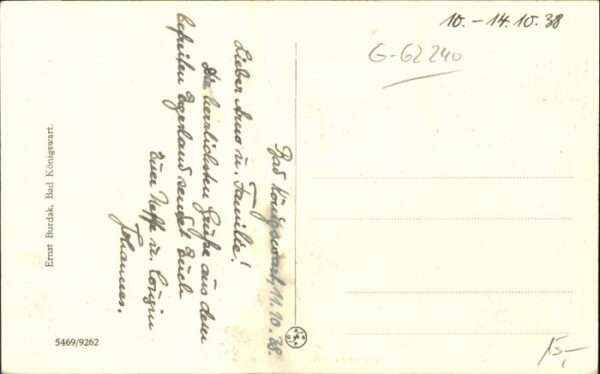 10. - 14. 10. 38
G-62240
Bad Königswart, 11.10.38.
Lieber Arno u. Familie!
Die herzlichsten Grüße aus dem
befreiten Egerland sendet Euch
Euer Neffe u. Cousin
Johannes.
Ernst Burdak, Bad Königswart.
5469/9262
15,-